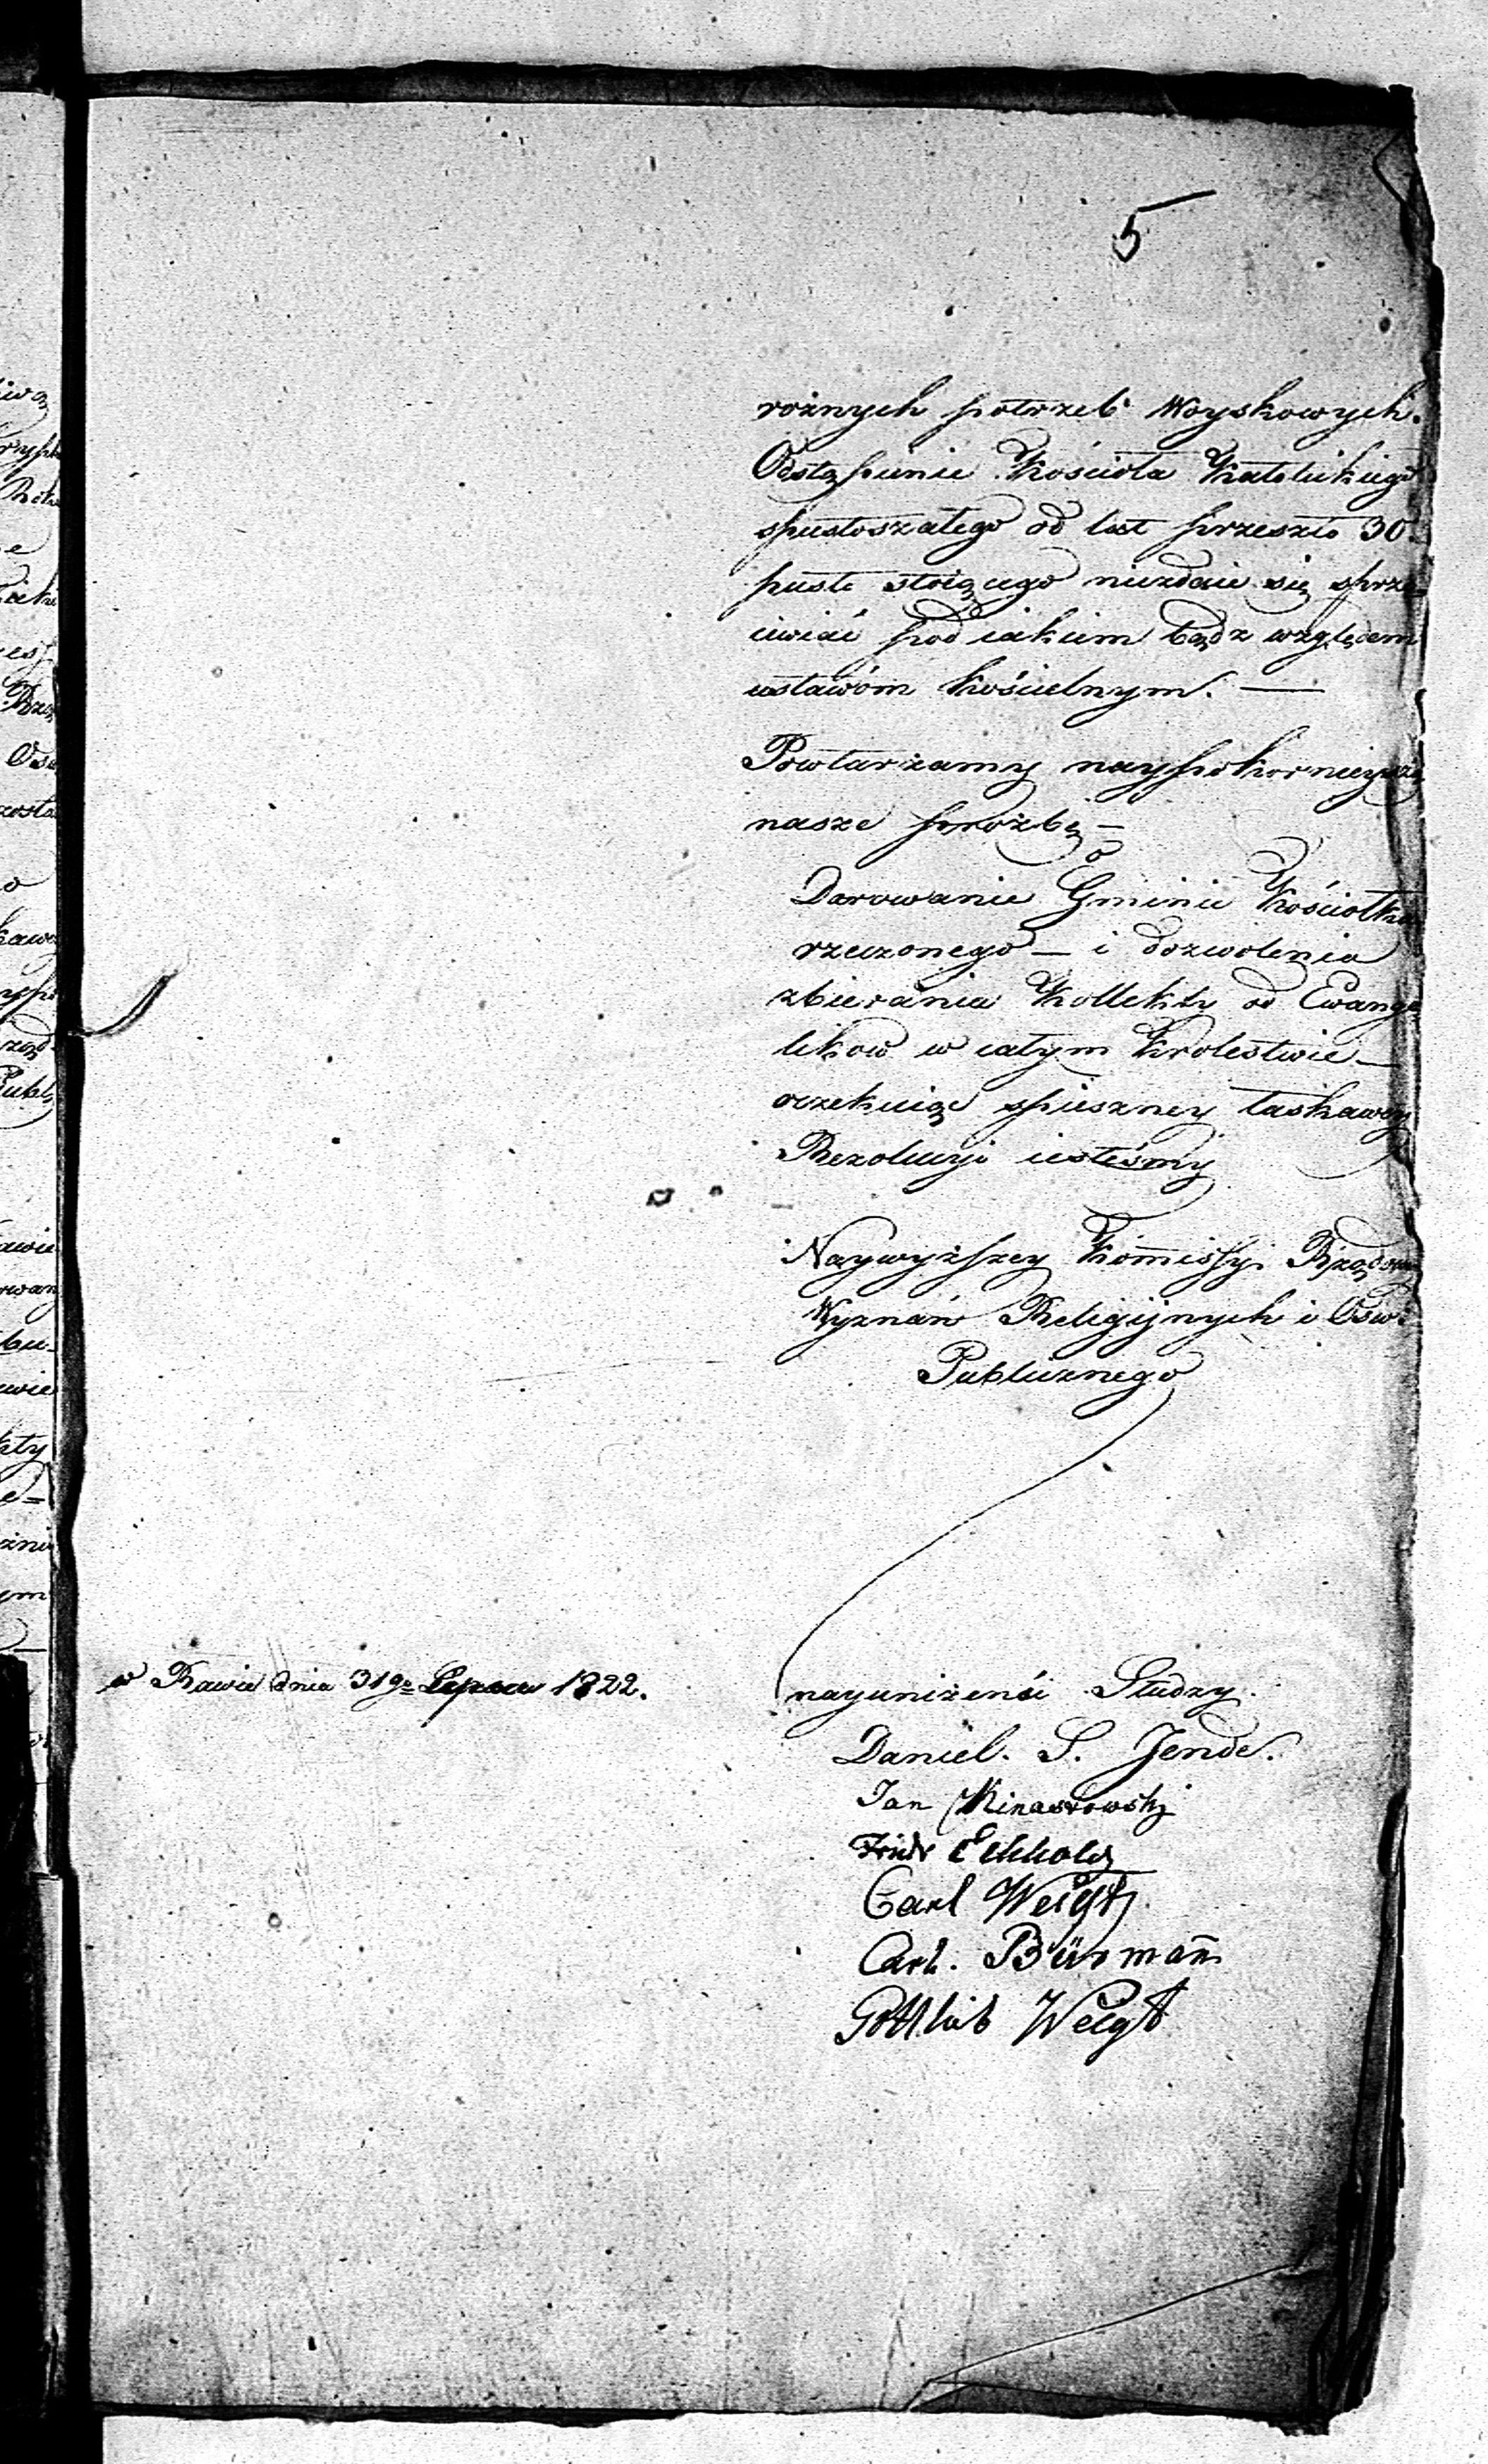 5
rożnych potrzeb Woyskowych.
Odstąpienie Kościoła Katolickiego
spustoszałego od lat przeszło 30.
puste stoiącego niezdaie się sprze-
ciwiać pod iakiem bądz względem
ustawóm kościelnym. —
Powtarzamy naypokornieyszą
nasze prożbę —
o
Darowanie Gminie Kościołka
rzeczonego — i dozwolenia
zbierania Kollekty od Ewange
likow w całym Krolestwie —
oczekuiąc spieszney łaskawey
Rezolucyi iesteśmy
Naywyższey Kom̄issyi Rządowey
Wyznań Religijnych i Osw.
Publicznego
w Rawie dnia 31go Lipca 1822.
nayuniżeńśi Słudzy.
Daniel. S. Jende.
Jan
Fridr Eckholz
Carl Weigt
Carl. Bürman̄
Gottlieb Weigt